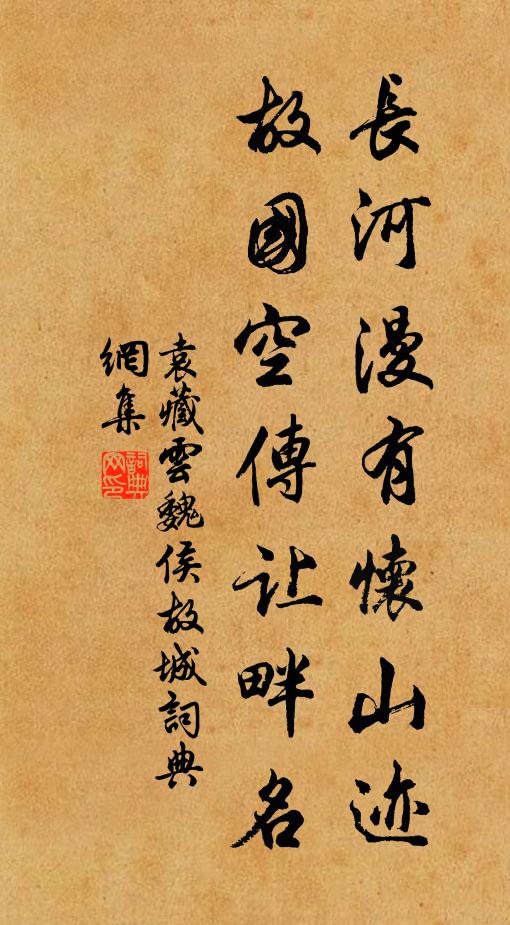 長河漫有懷山迹
故國空傳让畔名
袁藏雲魏侯故城詞典
網集
詞典網印